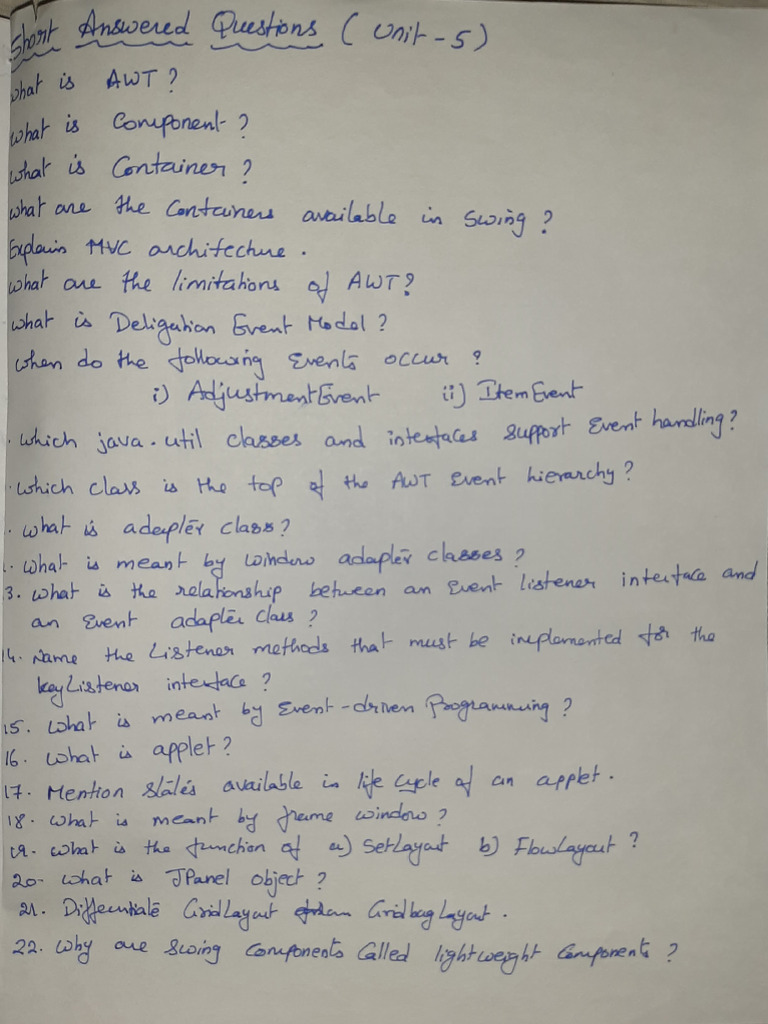 Short Answered Questions ( Unit - 5 )
What is AWT ?
What is Component ?
What is Container ?
What are the Containers available in Swing ?
Explain MVC architecture .
What are the limitations of AWT ?
What is Deligation Event Model ?
When do the following Events occur ?
i) AdjustmentEvent ii) ItemEvent
. Which java.util classes and interfaces support Event handling ?
. Which class is the top of the AWT Event hierarchy ?
. What is adapter class ?
. What is meant by window adapter classes ?
3. What is the relationship between an Event listener interface and
an Event adapter class ?
14. Name the Listener methods that must be implemented for the
keyListener interface ?
15. What is meant by Event-driven Programming ?
16. What is applet ?
17. Mention states available in life cycle of an applet .
18. What is meant by frame window ?
19. What is the function of a) SetLayout b) FlowLayout ?
20- What is JPanel object ?
21. Differentiate GridLayout Gridbag Layout .
22. Why are Swing Components Called lightweight Components ?